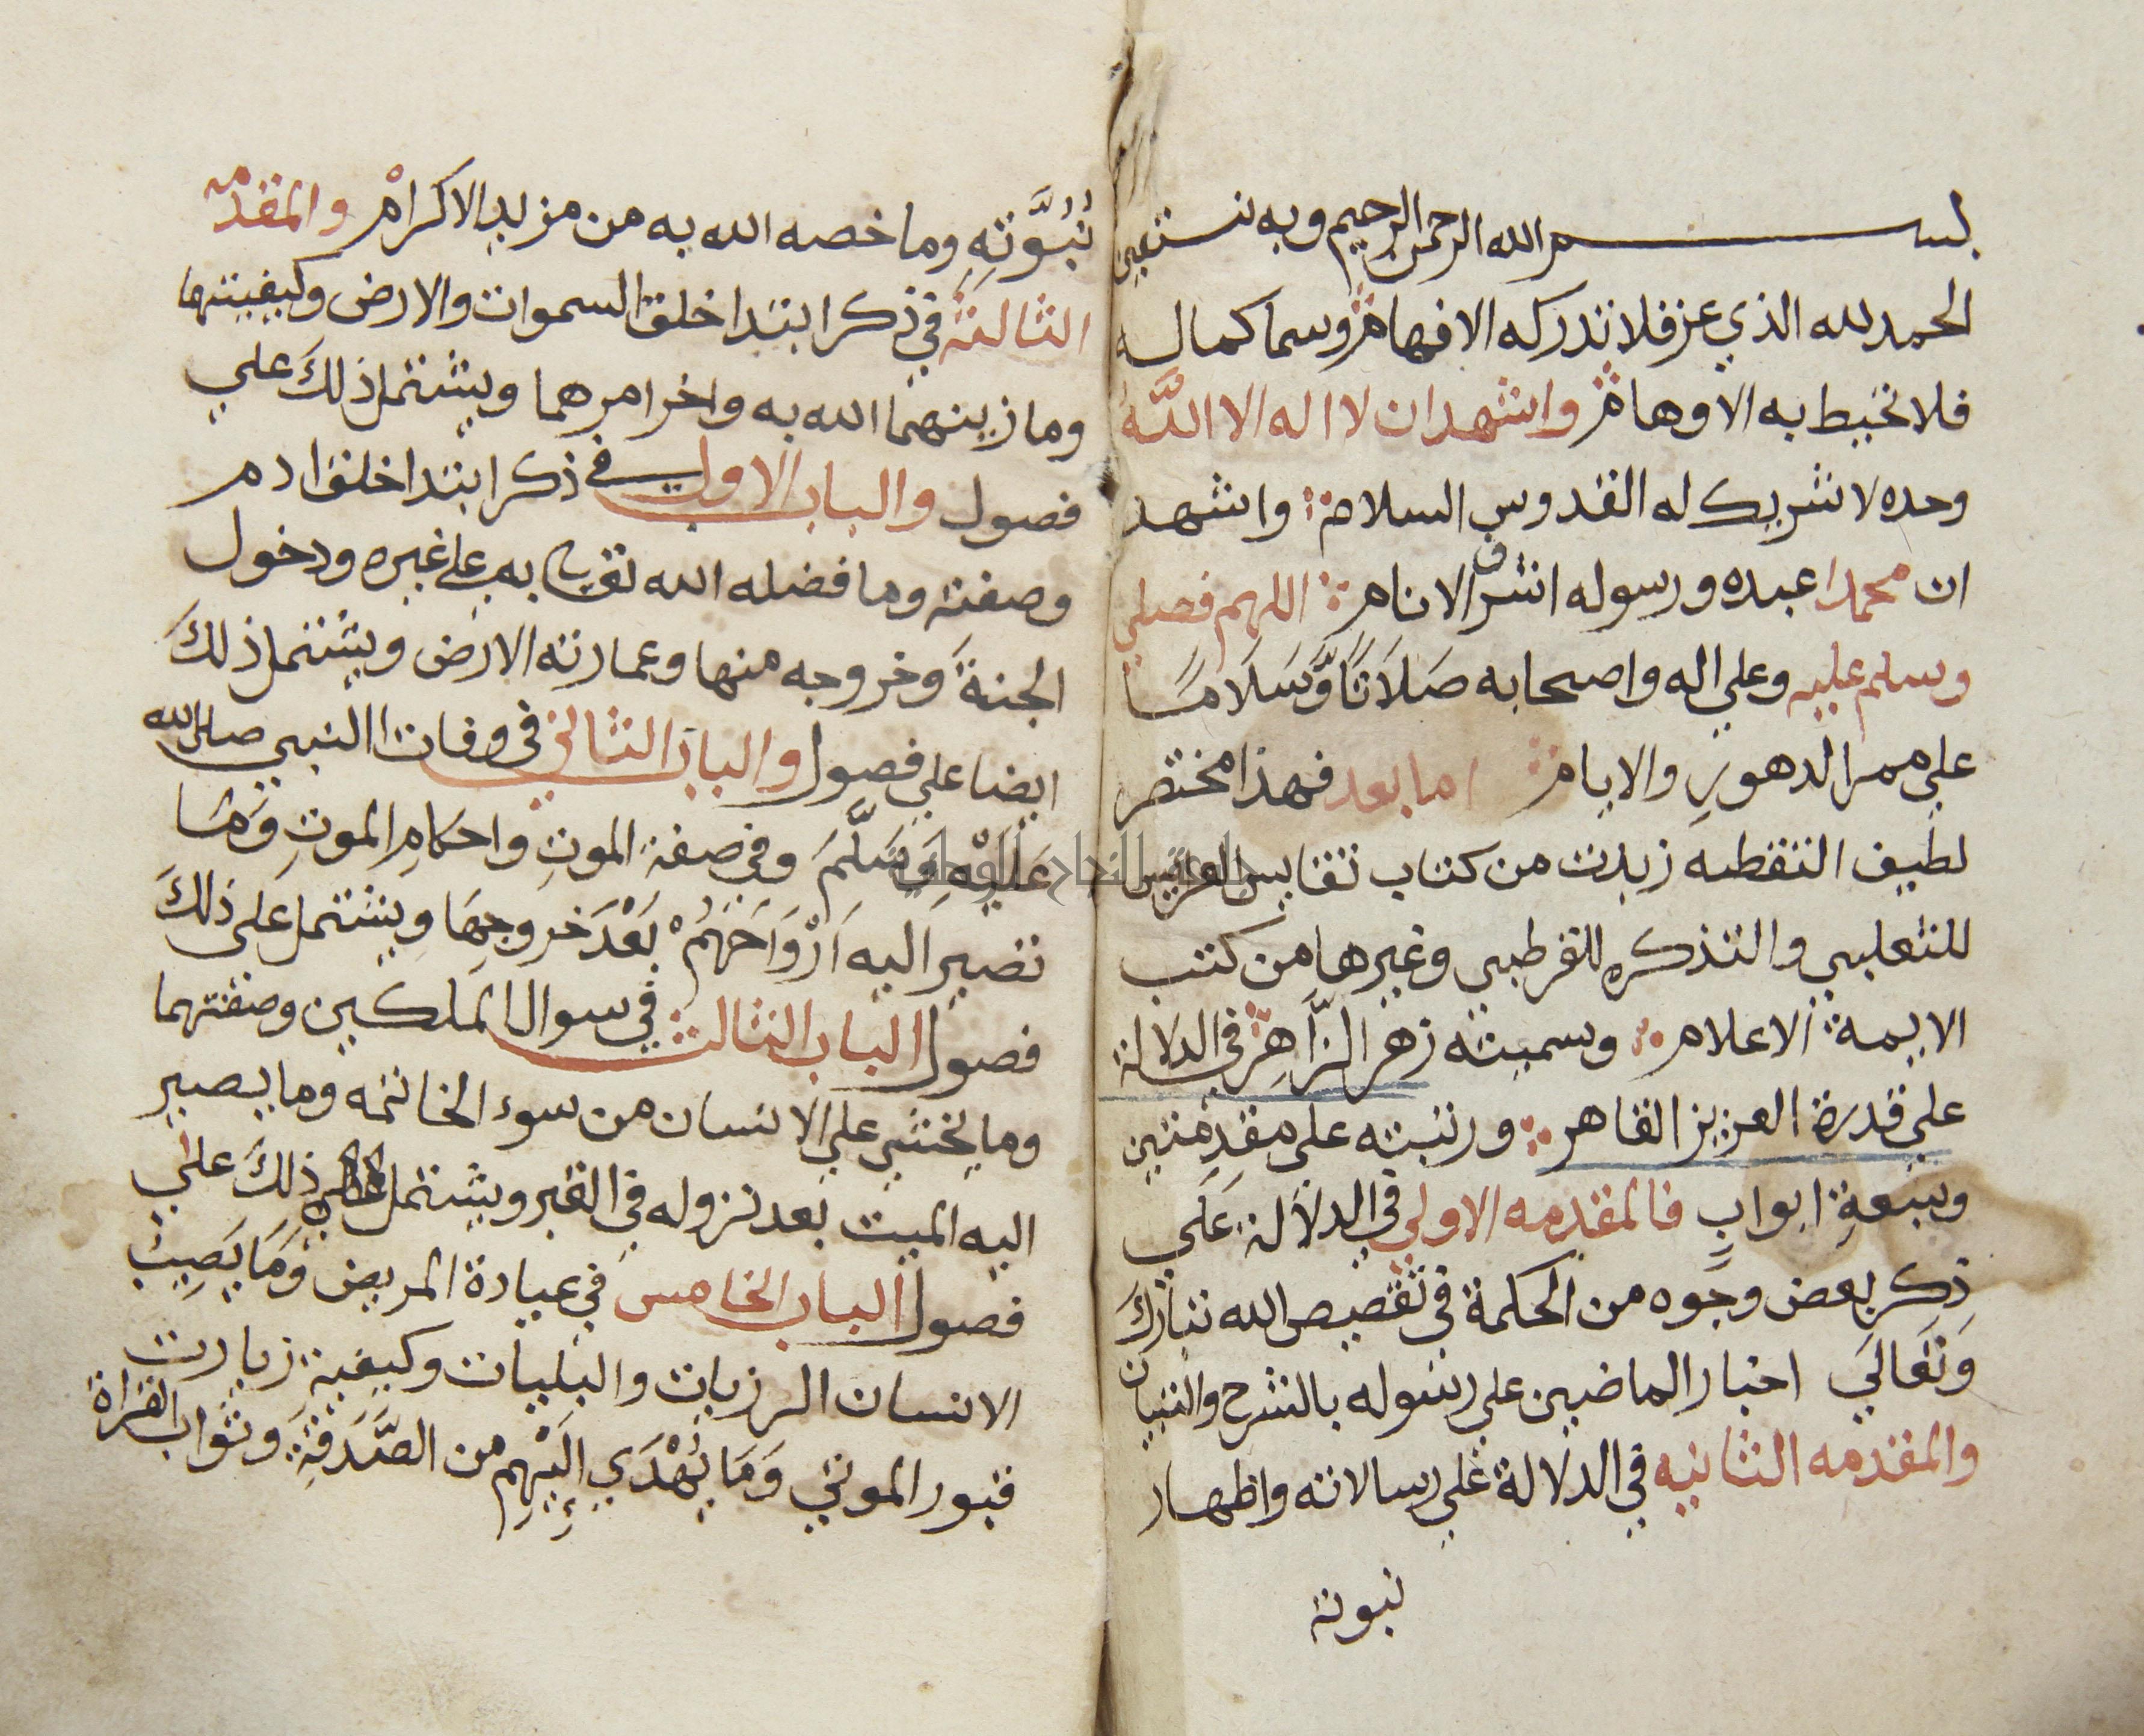 بسم الله الرحمن الرحيم وبه نستعين
الحمد لله الذي عز فلا تدركه الافهام وسما كماله
فلا تحيط به الاوهام واشهد ان لا اله الا الله
وحده لا شريك له القدوس السلام واشهد
ان محمدا عبده ورسوله اشرف الانام اللهم فصلي
وسلم عليه وعلي اله واصحابه صَلَاتًا وَّسَلَامًا
علي ممر الدهورِ والايام اما بعد فهذا مختصر
لطيف التقطه زبدت من كتاب نفايس العرايس
للثعلبي والتذكره للقرطبي وغيرها من كتب
الايمة الاعلام وسميته زهر الزَّاهِر في الدلالة
علي قدرة العزيز القاهر ورتبته على مقدمتين
وسبعةِ ابوابٍ فالمقدمه الاولي في الدلالة عَلَي
ذِكرِ بعض وجوه من الحكمة في تقصيص الله تبارك
وَتَعَالَي اخبار الماضين علي رسوله بالشرح والتبيان
والمقدمه الثانيه في الدلالة علي رسالاته واظهار
نبوته
نُبُوَّتِهِ وما خصه الله به من مزيد الاكرامْ والمقدمه
الثالثة في ذكر ابتدا خلق السموات والارض وكيفيتهما
وما زينهما الله به واخر امرهما ويشتمل ذلكَ علي
فصول والباب الاول في ذكر ابتدا خلق ادم
وصفته وما فضله الله تعالي به علي غيره ودخول
الجنة وخروجه منها وعمارته الارض ويشتمل ذلكَ
ايضا علي فصول والباب الثاني في وفات النبي صلى الله
عَلَيْهِ وَسَلَّمَ وفي صفة الموتِ واحكامِ الموتِ وَمَا
تصير اليه اَرْوَاحَهُمْ بَعْدَ خروجِهَا ويشتمل على ذلكَ
فصول الباب الثالث في سوال الملكين وصفتهما
وما يخشي علي الانسان من سوء الخاتمه وما يصير
اليه الميت بعد نزوله في القبر ويشتمل ذلكَ علي
فصول الباب الخامس في عيادة المريض وَمَا يَصِيبُ
الانسان الرزيات والبليات وكيفية زيارت
قبور الموتي وَمَا يُهْدَي اِلَيْهِم من الصَّدَقَةِ وثواب القراة